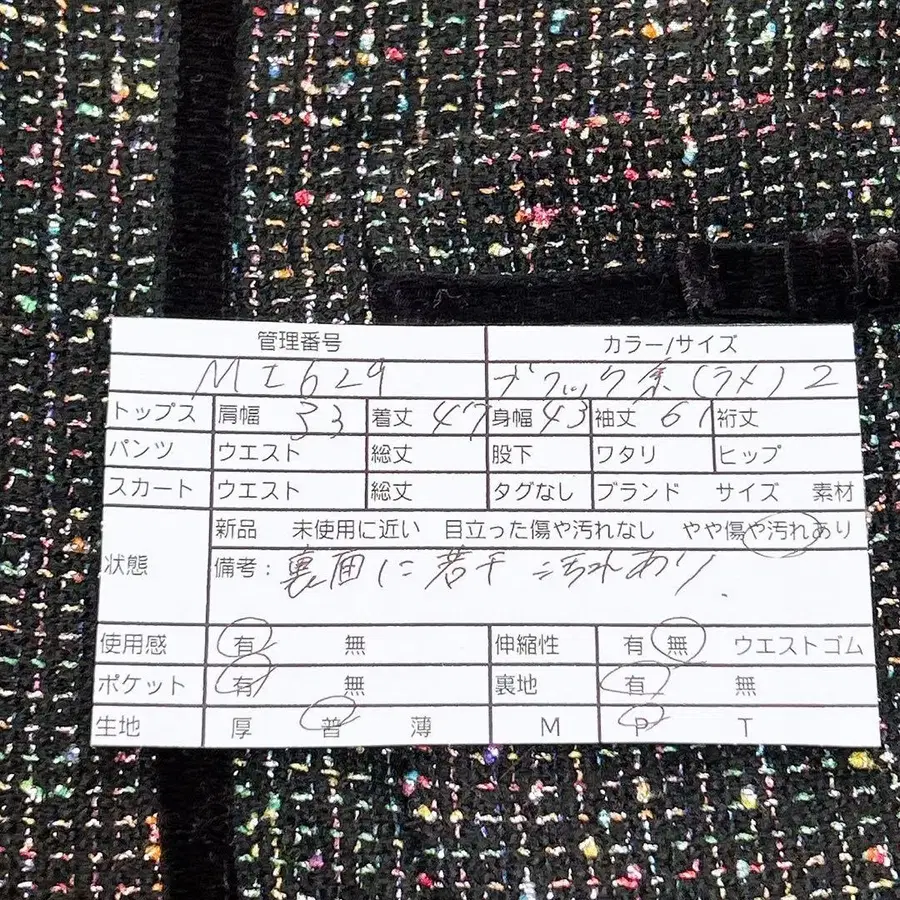 管理番号 カラー/サイズ
MI629 ブラック系(ラメ) 2
トップス 肩幅 33 着丈 47 身幅 43 袖丈 61 裄丈
パンツ ウエスト 総丈 股下 ワタリ ヒップ
スカート ウエスト 総丈 タグなし ブランド サイズ 素材
新品 未使用に近い 目立った傷や汚れなし やや傷や汚れあり
状態 備考：裏面に若干汚れあり.
使用感 有 無 伸縮性 有 無 ウエストゴム
ポケット 有 無 裏地 有 無
生地 厚 普 薄 M P T